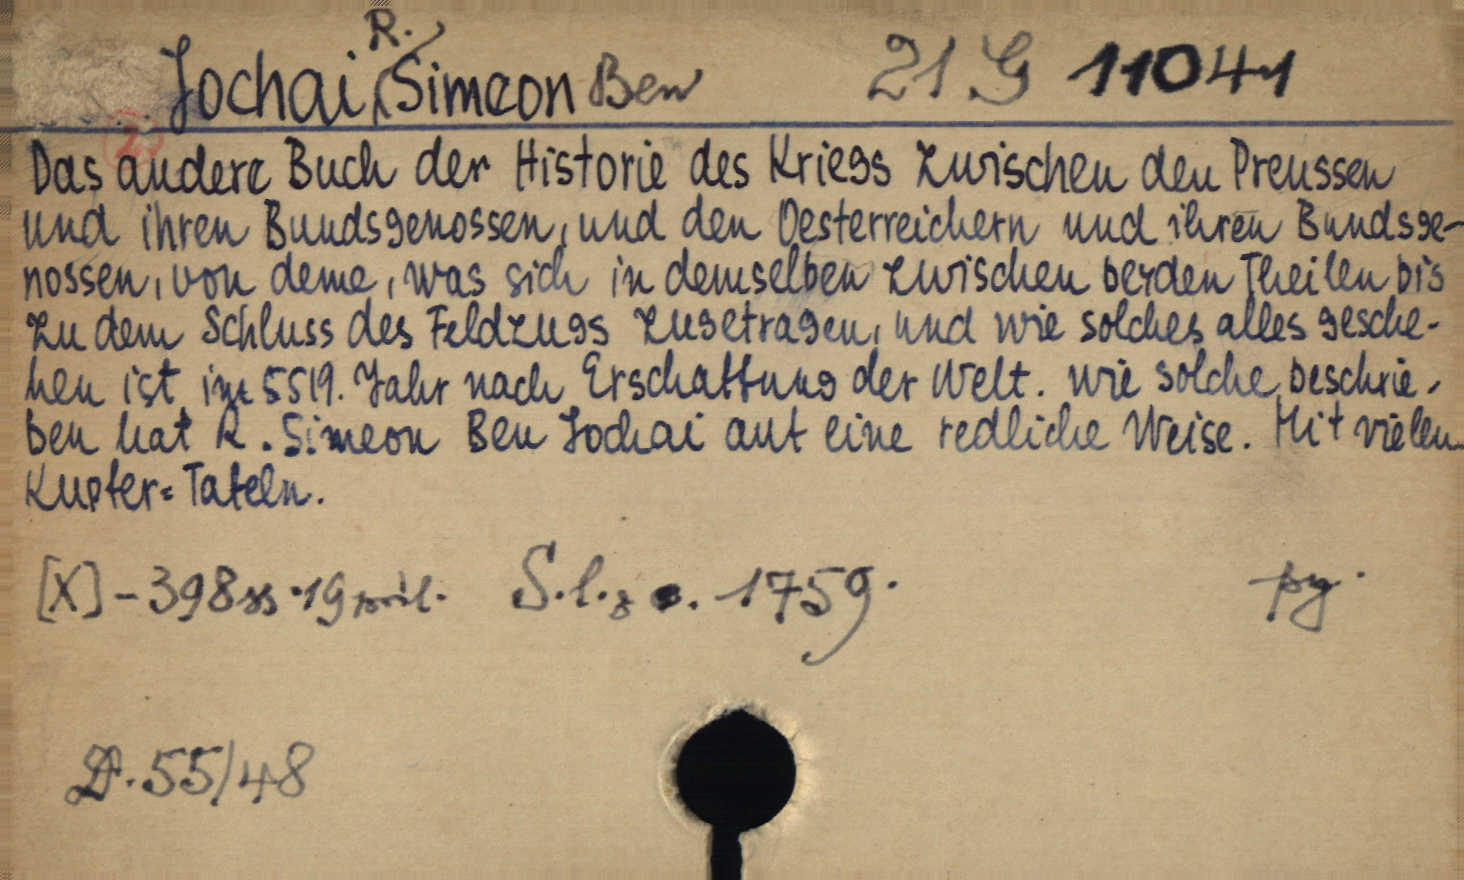 Jochai, R. Simeon Ben 21 G 11041
2.
Das andere Buch der Historie des Kriegs zwischen den Preussen
und ihren Bundsgenossen, und den Oesterreichern und ihren Bundsge-
nossen, von deme, was sich in demselben zwischen beyden Theilen bis
zu dem Schluss des Feldzugs zugetragen, und wie solches alles gesche-
hen ist im 5519. Jahr nach Erschaffung der Welt. wie solche beschrie-
ben hat R. Simeon Ben Jochai auf eine redliche Weise. Mit vielen
Kupfer=Tafeln.
[X] - 398 19 S.l. 1759. py.
D. 55/48